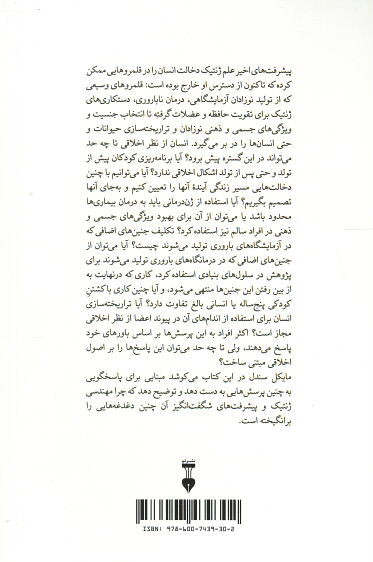 پیشرفت‌های اخیر علم ژنتیک دخالت انسان را در قلمروهایی ممکن
کرده که تاکنون از دسترس او خارج بوده است: قلمروهای وسیعی
که از تولید نوزادان آزمایشگاهی، درمان ناباروری، دستکاری‌های
ژنتیک برای تقویت حافظه و عضلات گرفته تا انتخاب جنسیت و
ویژگی‌های جسمی و ذهنی نوزادان و تراریخته‌سازی حیوانات و
حتی انسان‌ها را در بر می‌گیرد. انسان از نظر اخلاقی تا چه حد
می‌تواند در این گستره پیش برود؟ آیا برنامه‌ریزی کودکان پیش از
تولد و حتی پس از تولد اشکال اخلاقی ندارد؟ آیا می‌توانیم با چنین
دخالت‌هایی مسیر زندگی آیندهٔ آنها را تعیین کنیم و به‌جای آنها
تصمیم بگیریم؟ آیا استفاده از ژن‌درمانی باید به درمان بیماری‌ها
محدود باشد یا می‌توان از آن برای بهبود ویژگی‌های جسمی و
ذهنی در افراد سالم نیز استفاده کرد؟ تکلیف جنین‌های اضافی که
در آزمایشگاه‌های باروری تولید می‌شوند چیست؟ آیا می‌توان از
جنین‌های اضافی که در درمانگاه‌های باروری تولید می‌شوند برای
پژوهش در سلول‌های بنیادی استفاده کرد، کاری که درنهایت به
از بین رفتن این جنین‌ها منتهی می‌شود، و آیا چنین کاری با کشتنِ
کودکی پنج‌ساله یا انسانی بالغ تفاوت دارد؟ آیا تراریخته‌سازی
انسان برای استفاده از اندام‌های آن در پیوند اعضا از نظر اخلاقی
مجاز است؟ اکثر افراد به این پرسش‌ها بر اساس باورهای خود
پاسخ می‌دهند، ولی تا چه حد می‌توان این پاسخ‌ها را بر اصول
اخلاقی مبتنی ساخت؟
مایکل سندل در این کتاب می‌کوشد مبنایی برای پاسخگویی
به چنین پرسش‌هایی به دست دهد و توضیح دهد که چرا مهندسی
ژنتیک و پیشرفت‌های شگفت‌انگیز آن چنین دغدغه‌هایی را
برانگیخته است.
نشر نو
ISBN: 978-600-7439-30-2